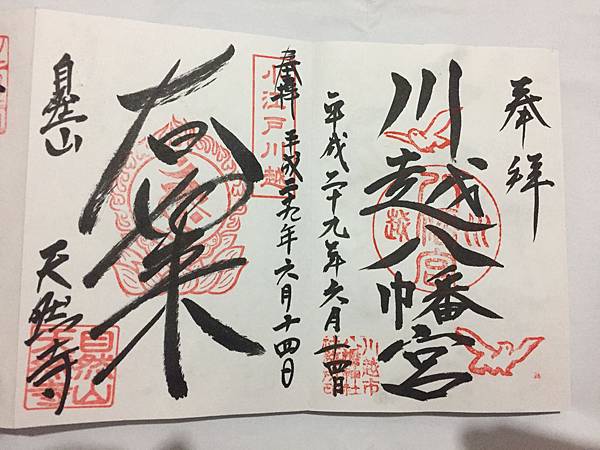 奉拝
川越八幡宮
平成二十九年六月十四日
川越市
奉拝 平成二九年六月十四日
小江戸川越
自然山
天然寺
自然山
天然寺